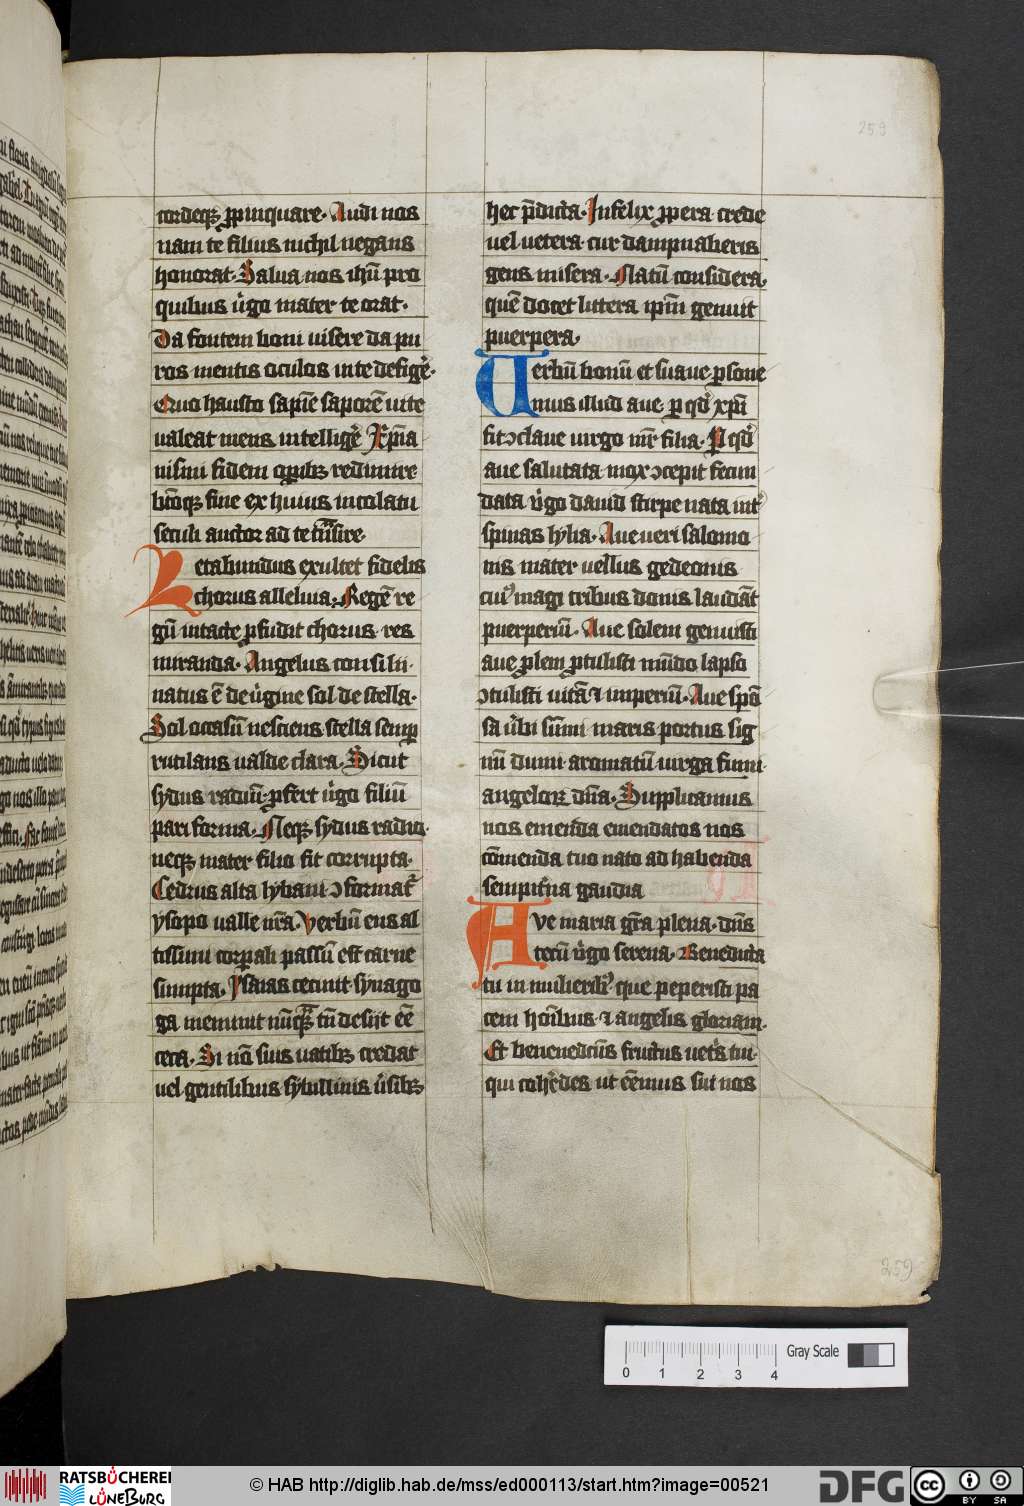 259
cordeqꝫ ꝓpinquare. Audi nos
nam te filius nichil negans
honorat. Salua nos ihū pro
quibus ůgo mater te orat.
Da fontem boni uisere da pu
ros mentis oculos in te defigẽ.
Quo hausto sapiē̄e saporē uite
ualeat mens intelligẽ Xp̄ia
nismi fidem oꝑibꝫ redimire
btōqꝫ fine ex huius incolatu
seculi auctor ad te tn̄sire.
Letabundus exultet fidelis
chorus alleluia. Regē re
gū intacte ꝓfudit chorus res
miranda. Angelus consilii
natus ē de ůgine sol de stella.
Sol occasū nesciens stella semꝑ
rutilans ualde clara. Sicut
sydus radiū ꝓfert ůgo filiū
pari forma. Neqꝫ sydus radio
neqꝫ mater filio fit corrupta.
Cedrus alta lybani ↄformat᷑
ysopo ualle nr̄a. Verbū ens al
tissimi corꝑali passū est carne
sumpta. Ysaias cecinit synago
ga meminit nūqͣ tn̄ desiit eē
ceca. Si nō suis uatibꝫ credat
uel gentilibus sybillinis ůsibꝫ
hec p̄dicta. Infelix ꝓpera crede
uel uetera cur dampnaberis
gens misera. Natū considera.
quē docet littera ip̄m genuit
puerpera.
Uerbū bonū et suaue ꝑsone
mus illud aue ꝑ qd̓ xp̄i
fit ↄclaue uirgo mr̄ filia. Ꝑ qd̓
aue salutata mox ↄcepit fecun
data ůgo dauid stirpe nata int᷑
spinas lylia. Aue ueri salomo
nis mater uellus gedeonis
cuiꝰ magi tribus donis laudāt
puerperiū. Aue solem genuisti
aue ꝓlem ꝓtulisti mūdo lapso
ↄtulisti uitā ⁊ imperiū. Aue spō
sa ůbi sūmi maris portus sig
nū dumi aromatū uirga fumi
angeloꝝ dn̄a. Supplicamus
nos emenda emendatos nos
cōmenda tuo nato ad habenda
sempit̓na gaudia
Ave maria gr̄a plena. dn̄s
tecū ůgo serena. Benedicta
tu in mulieribꝰ que peperisti pa
cem hoībus ⁊ angelis gloriam.
Et benenedictꝰ fructus uent̓s tui.
qui coh̓edes ut eēmus sui nos
259
0 1 2 3 4
Gray Scale
RATSBÜCHEREI
LÜNEBURG
© HAB http://diglib.hab.de/mss/ed000113/start.htm?image=00521
DFG
cc
BY SA